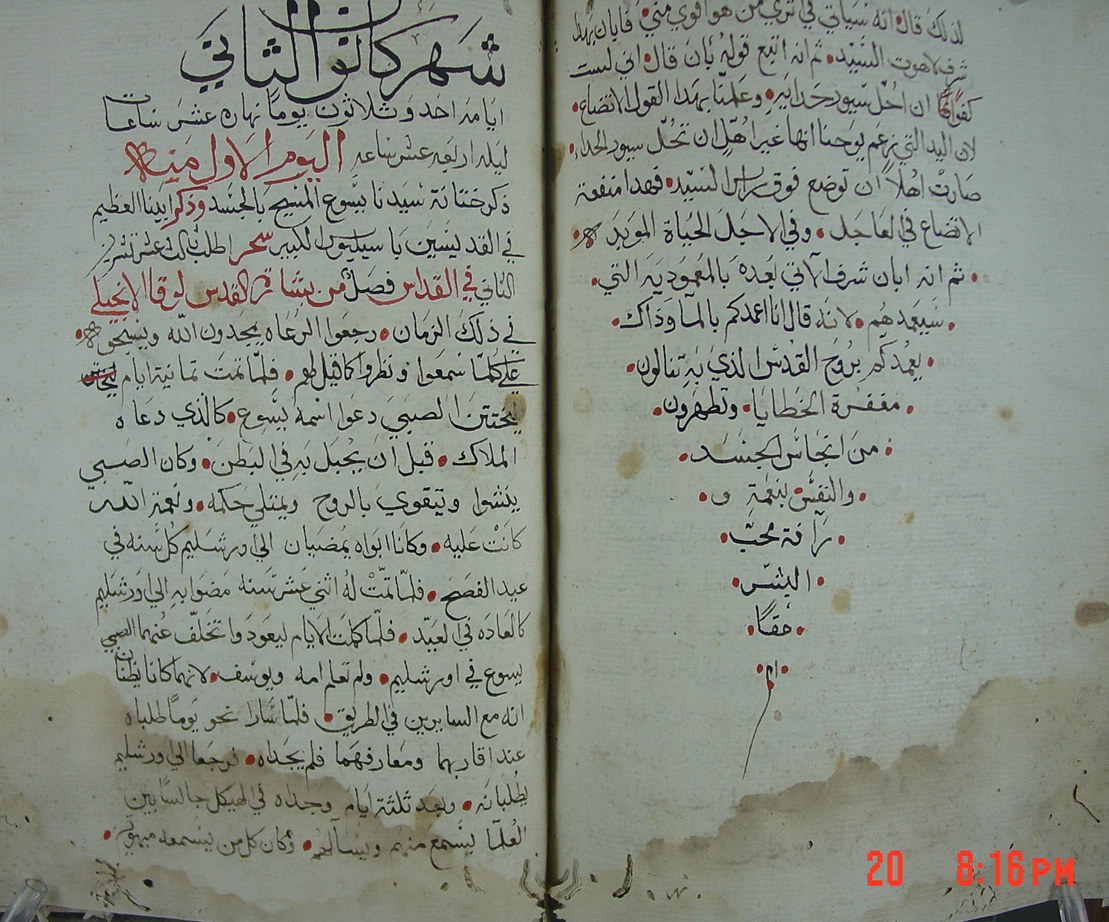 لذلك قال انه سياتي في ثري من هو اقوي مني فابان بهذا
شرف لاهوت السيد ثم انه اتبع قوله بان قال اني لست
كفوا ان احل سيور حدايه وعلمنا بهذا القول الاتضاع
لان اليد التي زعم يوحنا انها غير اهل ان تحل سيور الحدا
صارت اهلا ان توضع فوق راس السيد فهدا منفعة
الاتضاع في العاجل وفي الاجل الحياة الموبده
ثم انه ابان شرف الاتي بعده بالمعمودية التي
سيعمدهم لانه قال انا اعمدكم بالما وذاك
يعمدكم بروح القدس الذي به تنالون
مغفرة الخطايا وتطهرون
من انجاس الجسد
والنفس بنعمة و
رافة محب
البشر
حقا
شهر كانون الثاني
ايامه احد وثلاثون يوما نهاره عشر ساعات
ليله اربعة عشر ساعه اليوم الاول منه
ذكر ختانة سيدنا يسوع المسيح بالجسد وذكر ابينا العظيم
في القديسين باسيليوس الكبير سحر اطلب ثالث عشر تشرين
الثاني في القداس فصل من بشارة القديس لوقا الانجيلي
في ذلك الزمان رجعوا الرعاه يمجدون الله ويسبحو
علي كلما سمعوا ونظروا كما قيل لهم فلما تمت تمانية ايام
ليختتن الصبي دعوا اسمه يسوع كالذي دعاه
الملاك قبل ان يحبل به في البطن وكان الصبي
ينشوا ويتقوي بالروح ويمتلي حكمه ونعمة الله
كانت عليه وكانا ابواه يمضيان الي اورشليم كل سنه في
عيد الفصح فلما تمت له اثني عشر سنه مضوا به الي اورشليم
كالعاده في العيد فلما كملت الايام ليعودوا تخلف عنهما الصبي
يسوع في اورشليم ولم تعلم امه ويوسف لانهما كانا يظنان
انه مع السايرين في الطريق فلما سارا نحو يوما طلباه
عند اقاربهما ومعارفهما فلم يجداه فرجعا الي اورشليم
يطلبانه وبعد ثلثة ايام وجداه في الهيكل جالسا بين
العلما يسمع منهم ويسالهم وكان كل من يسمعه مبهوتين
20 8:16 PM